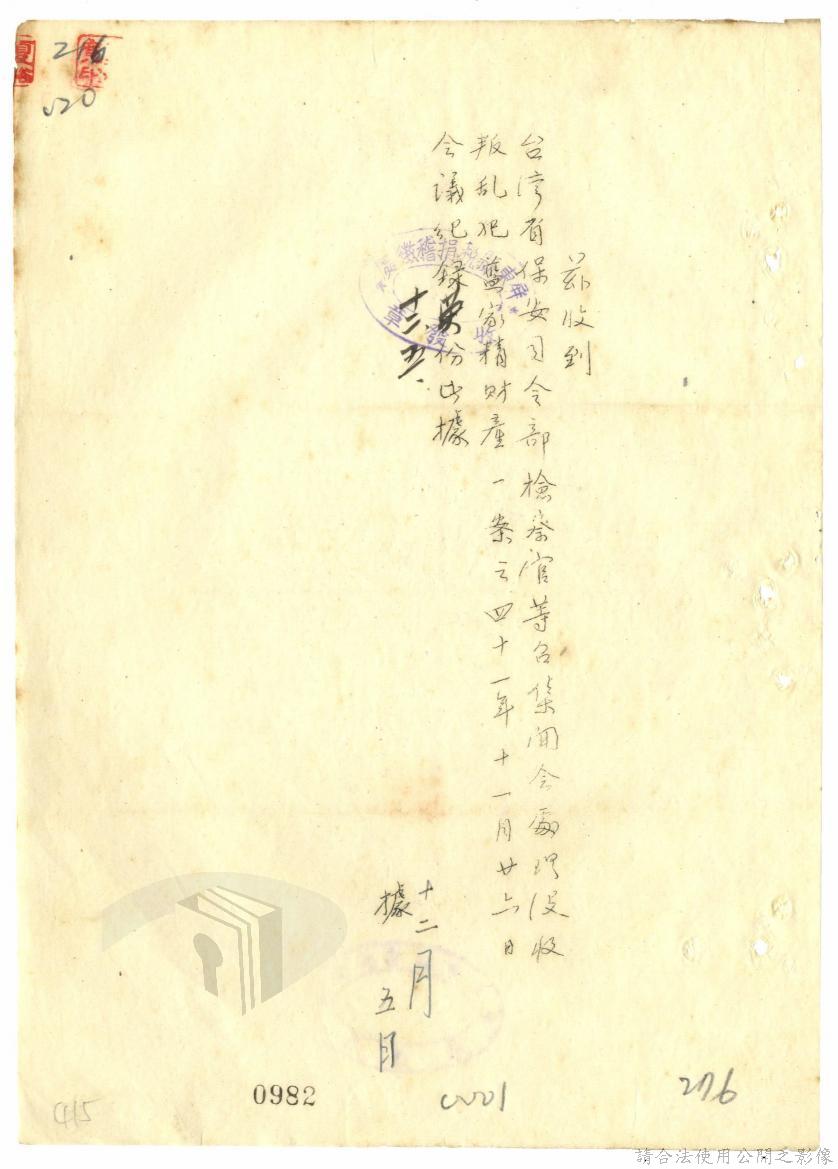 茲收到
台湾省保安司令部檢察官等召集開会處理沒收
叛乱犯藍家精財產一案之四十一年十一月廿六日
会議紀録
份此據
十二.五.
十二月五日
據
216
020
0982
0001
276
415
請合法使用公開之影像